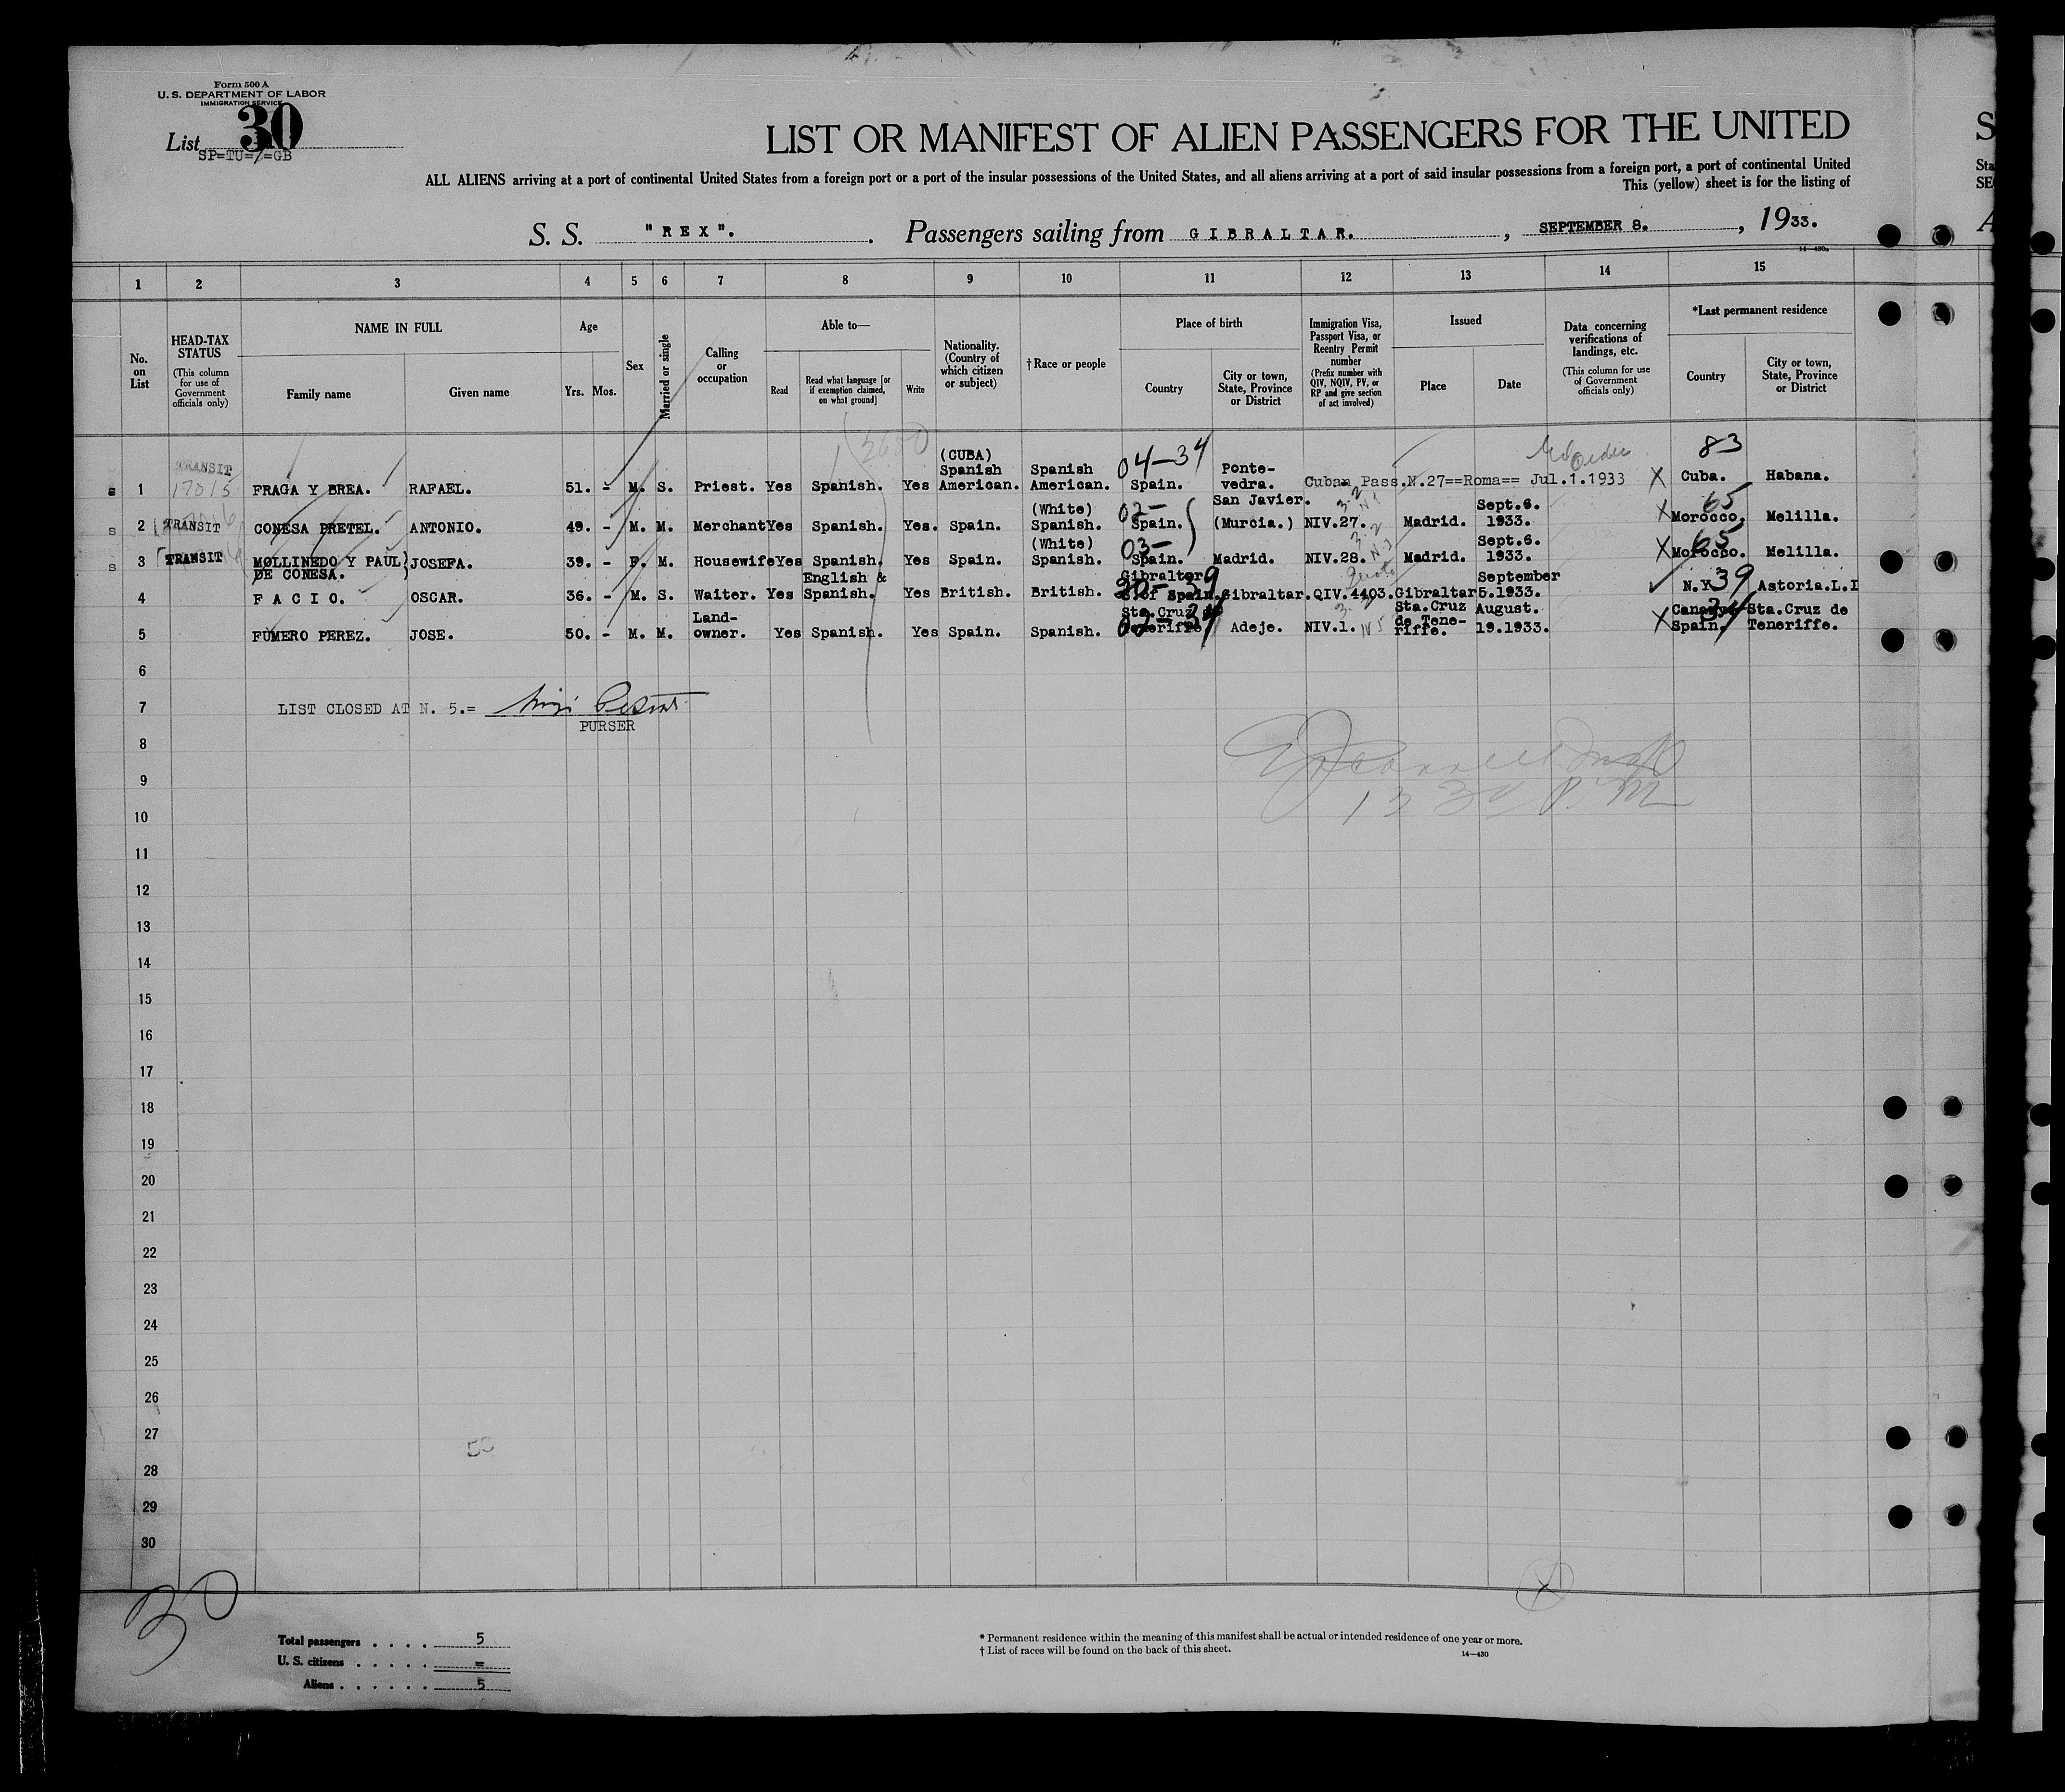 Form 500 A
U. S. DEPARTMENT OF LABOR
IMMIGRATION SERVICE
List 30
SP=TU=/=GB
LIST OR MANIFEST OF ALIEN PASSENGERS FOR THE UNITED
ALL ALIENS arriving at a port of continental United States from a foreign port or a port of the insular possessions of the United States, and all aliens arriving at a port of said insular possessions from a foreign port, a port of continental United
This (yellow) sheet is for the listing of
S. S. "REX". Passengers sailing from GIBRALTAR. , SEPTEMBER 8. , 1933.
1 2 3 4 5 6 7 8 9 10 11 12 13 14 15
No. on List
HEAD-TAX STATUS
(This column for use of Government officials only)
NAME IN FULL
Family name
Given name
Age
Yrs. Mos.
Sex
Married or single
Calling or occupation
Able to—
Read
Read what language [or if exemption claimed, on what ground]
Write
Nationality. (Country of which citizen or subject)
†Race or people
Place of birth
Country
City or town, State, Province or District
Immigration Visa, Passport Visa, or Reentry Permit number
(Prefix number with QIV, NQIV, PV, or RP and give section of act involved)
Issued
Place
Date
Data concerning verifications of landings, etc.
(This column for use of Government officials only)
*Last permanent residence
Country
City or town, State, Province or District
s 1 TRANSIT 17015 FRAGA Y BREA. RAFAEL. 51. - M. S. Priest. Yes Spanish. Yes (CUBA) Spanish American. Spanish American. 04-34 Spain. Ponte-vedra. Cuban Pass.N.27==Roma== Jul.1.1933 X 83 Cuba. Habana.
s 2 TRANSIT CONESA PRETEL. ANTONIO. 49. - M. M. Merchant Yes Spanish. Yes. Spain. (White) Spanish. 02- Spain. San Javier. (Murcia.) NIV.27. Madrid. Sept.6. 1933. X 65 Morocco. Melilla.
s 3 TRANSIT MOLLINEDO Y PAUL DE CONESA. JOSEFA. 39. - F. M. Housewife Yes Spanish. Yes Spain. (White) Spanish. 03- Spain. Madrid. NIV.28. Madrid. Sept.6. 1933. X 65 Morocco. Melilla.
4 FACIO. OSCAR. 36. - M. S. Waiter. Yes English & Spanish. Yes British. British. Gibraltar S.of Spain. Gibraltar. QIV.4403. Gibraltar September 5.1933. N.Y. 39 Astoria.L.I
5 FUMERO PEREZ. JOSE. 50. - M. M. Land-owner. Yes Spanish. Yes Spain. Spanish. Sta.Cruz de Teneriffe Adeje. NIV.1. Sta.Cruz de Tene-riffe. August. 19.1933. X Canary Spain. 34 Sta.Cruz de Teneriffe.
6
7 LIST CLOSED AT N. 5.=
PURSER
8
9
10
11
12
13
14
15
16
17
18
19
20
21
22
23
24
25
26
27
28
29
30
30
Total passengers . . . . 5
U. S. citizens . . . . . =
Aliens . . . . . . 5
* Permanent residence within the meaning of this manifest shall be actual or intended residence of one year or more.
† List of races will be found on the back of this sheet.
14—430